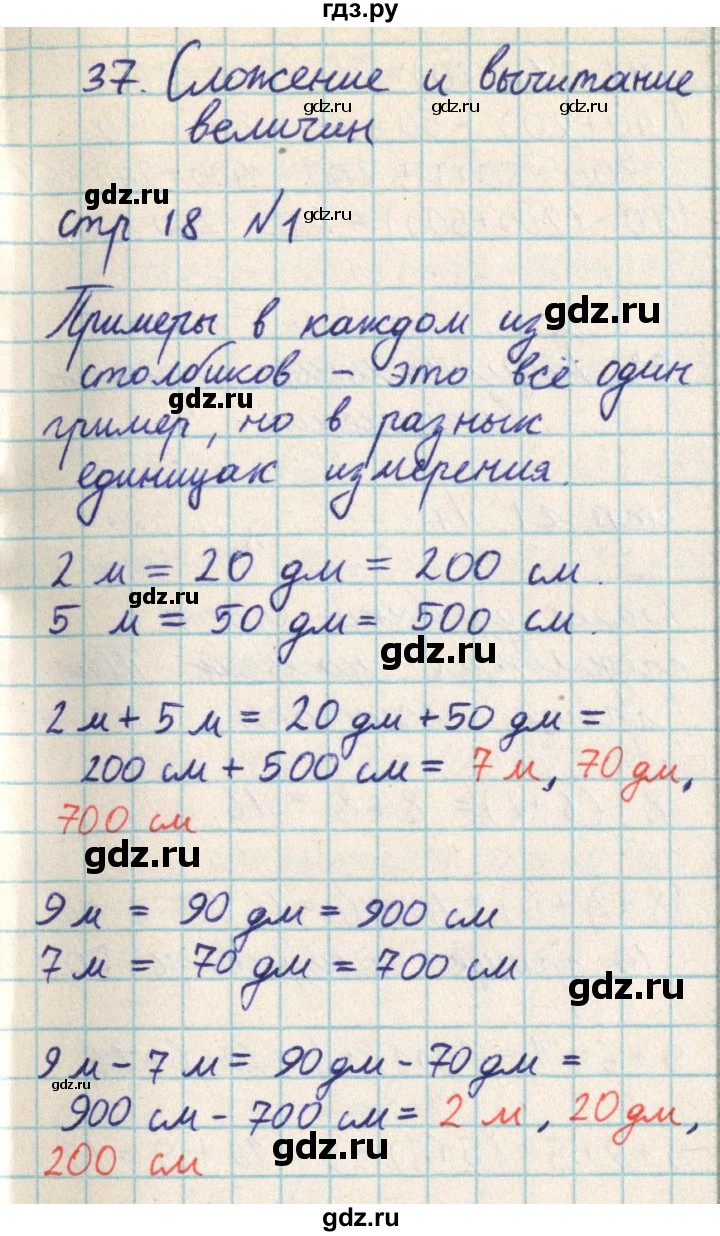 гдз.ру
37. Сложение и вычитание
gdz.ru gdz.ru gdz.ru
величин
gdz.ru
стр 18 №1 gdz.ru
Примеры в каждом из gdz.ru
столбиков - это всё один
gdz.ru
пример, но в разных
единицах измерения.
2 м = 20 дм = 200 см.
gdz.ru
5 м = 50 дм = 500 см.
gdz.ru
2 м + 5 м = 20 дм + 50 дм =
200 см + 500 см = 7 м, 70 дм,
700 см
gdz.ru
9 м = 90 дм = 900 см
7 м = 70 дм = 700 см
gdz.ru
9 м - 7 м = 90 дм - 70 дм =
gdz.ru
900 см - 700 см = 2 м, 20 дм,
gdz.ru
200 см
gdz.ru